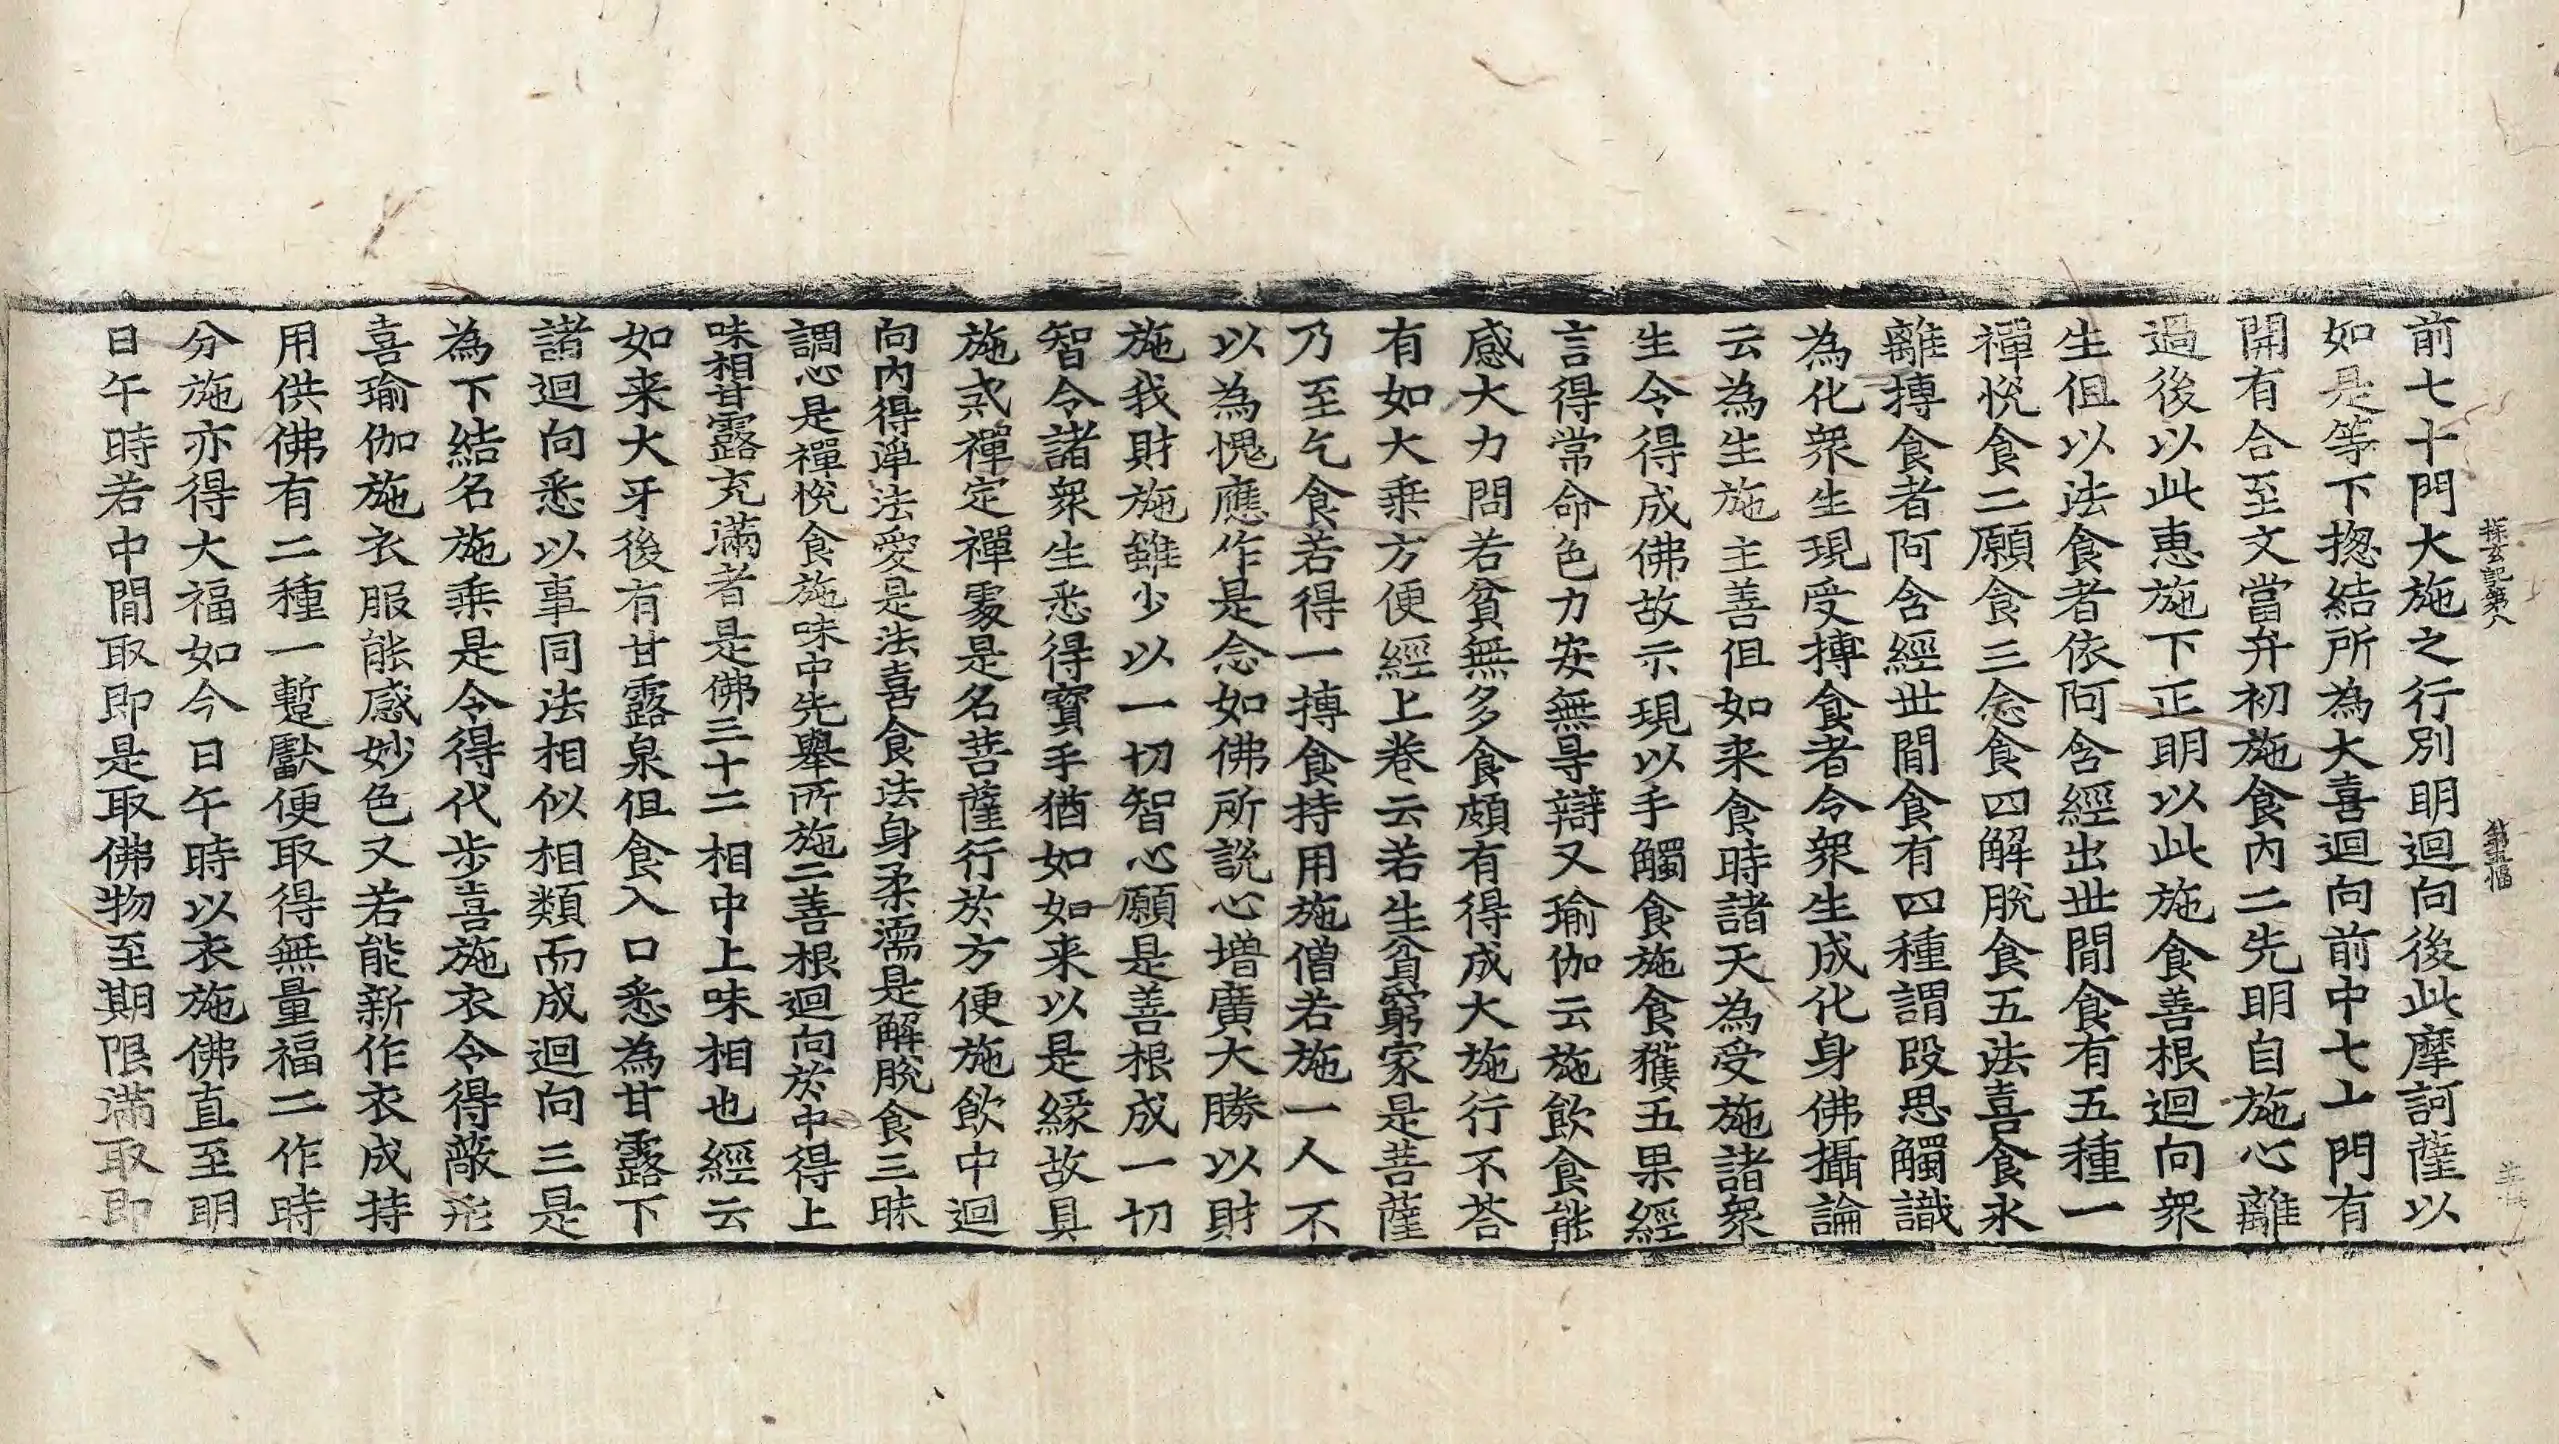 探玄記第八
前七十門大施之行別明迴向後此摩訶薩以
如是等下揔結所為大喜迴向前中七十門有
開有合至文當弁初施食內二先明自施心離
過後以此惠施下正明以此施食善根迴向衆
生但以法食者依阿含經出世間食有五種一
禪悅食二願食三念食四解脫食五法喜食永
離摶食者阿含經世間食有四種謂段思觸識
為化衆生現受摶食者令衆生成化身佛攝論
云為生施主善但如来食時諸天為受施諸衆
生令得成佛故示現以手觸食施食獲五果經
言得常命色力安無㝵辯又瑜伽云施飲食能
感大力問若貧無多食頗有得成大施行不荅
有如大乘方便經上卷云若生貧窮家是菩薩
乃至乞食若得一摶食持用施僧若施一人不
以為愧應作是念如佛所說心增廣大勝以財
施我財施雖少以一切智心願是善根成一切
智令諸衆生悉得寶手猶如如来以是緣故具
施戒禪定禪處是名菩薩行於方便施飲中迴
向內得淨法愛是法喜食法身柔濡是解脫食三昧
調心是禪悅食施味中先舉所施二善根迴向於中得上
味相甘露充滿者是佛三十二相中上味相也經云
如来大牙後有甘露泉但食入口悉為甘露下
諸迴向悉以事同法相似相類而成迴向三是
為下結名施乘是令得代步喜施衣令得蔽形
喜瑜伽施衣服能感妙色又若能新作衣成持
用供佛有二種一蹔獻便取得無量福二作時
分施亦得大福如今日午時以衣施佛直至明
日午時若中間取即是取佛物至期限滿取即